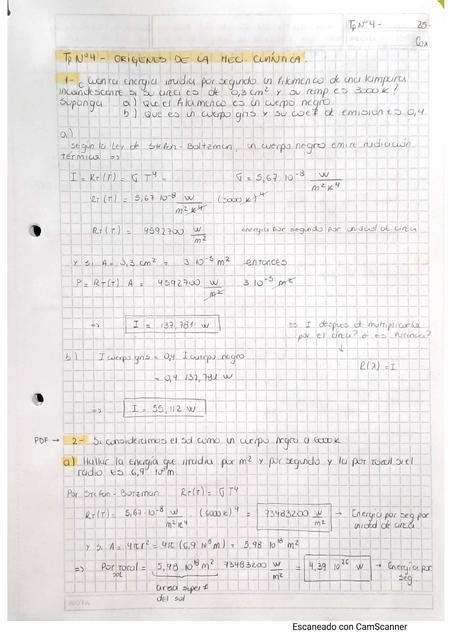 Tp Nº4 - 25-
Tp Nº4 - ORIGENES DE LA MEC. CUÁNTICA.
1- ¿Cuánta energía irradia por segundo un filamento de una lámpara
incandescente si su área es de 0,3 cm² y su temp es 3000 K?
Suponga a) Que el filamento es un cuerpo negro.
b) Que es un cuerpo gris y su coef de emisión es 0,4
a)
Según la Ley de Stefan-Boltzman, un cuerpo negro emite radiación
térmica =>
I = RT(T) = σ T⁴ = σ = 5,67 10⁻⁸ W/m²K⁴
RT(T) = 5,67 10⁻⁸ W/m²K⁴ (3000 K)⁴
RT(T) = 4592700 W/m² energía por segundo por unidad de área
y si A = 0,3 cm² = 3 10⁻⁵ m² entonces
P = RT(T) A = 4592700 W/m² 3 10⁻⁵ m²
=> I = 137,781 W => I después de multiplicarla
por el área? o es Potencia?
R(λ) = I
b) I cuerpo gris = 0,4 I cuerpo negro
= 0,4 137,781 W
=> I = 55,112 W
PDF → 2- Si consideramos el sol como un cuerpo negro a 6000 K
a) Hallar la energía que irradia por m² y por segundo y la por total si el
radio es 6,9 10⁸ m.
Por Stefan-Boltzman RT(T) = σ T⁴
RT(T) = 5,67 10⁻⁸ W/m²K⁴ (6000 K)⁴ = 73483200 W/m² → Energía por seg por
unidad de área
y si A = 4πr² = 4π (6,9 10⁸ m)² = 5,98 10¹⁸ m²
=> Por total sol = 5,98 10¹⁸ m² 73483200 W/m² = 4,39 10²⁶ W → Energía por
seg
área superf
del sol
Escaneado con CamScanner